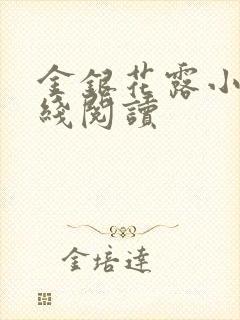 金銀花露小
綫閱讀
金培達